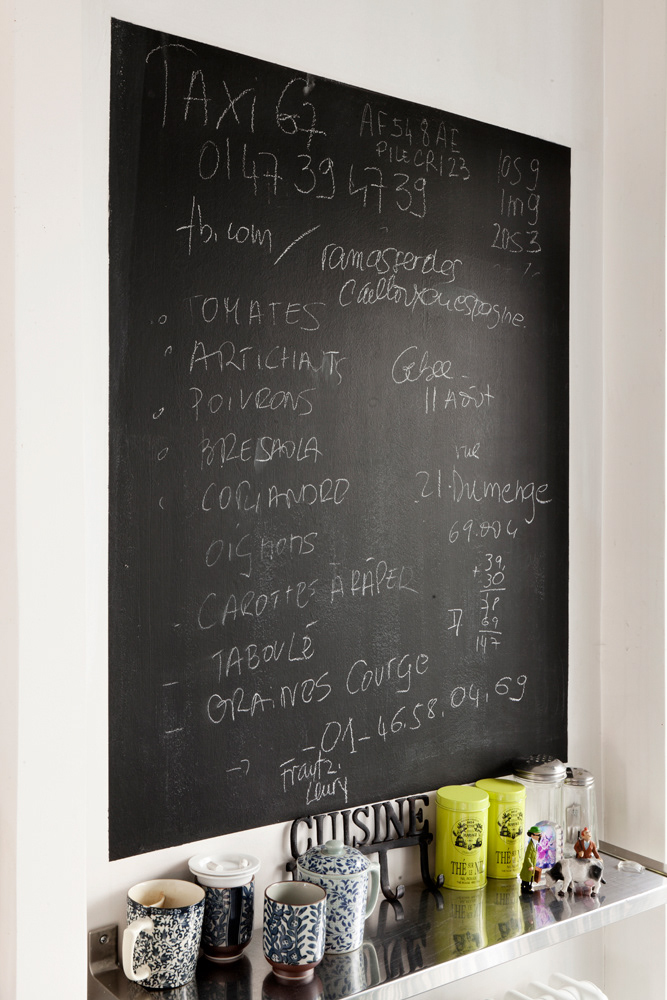 TAXI G7
AF548AE
PILECR123
01 47 39 47 39
105 9
1m9
2053
fb.com/
ramasserdes
Caillouxenespagne.
TOMATES
ARTICHAUTS
POIVRONS
BRESAOLA
CORIANDRE
oignons
CAROTTES À RÂPER
TABOULÉ
GRAINES Courge
11 Août
rue
21. Dumenge
69.004
+39,
30
69
147
→ - 01-46.58.04.69
Frantz.
Leury
CUISINE
THÉ
THÉ